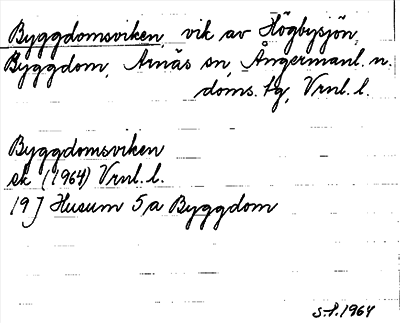 Byggdomsviken, vik av Högbysjön,
Byggdom, Arnäs sn, Ångermanl. n.
doms. tg, Vrnl. l.
Byggdomsviken
ek (1964) Vrnl. l.
19 J Husum 5,a Byggdom
s-l. 1964